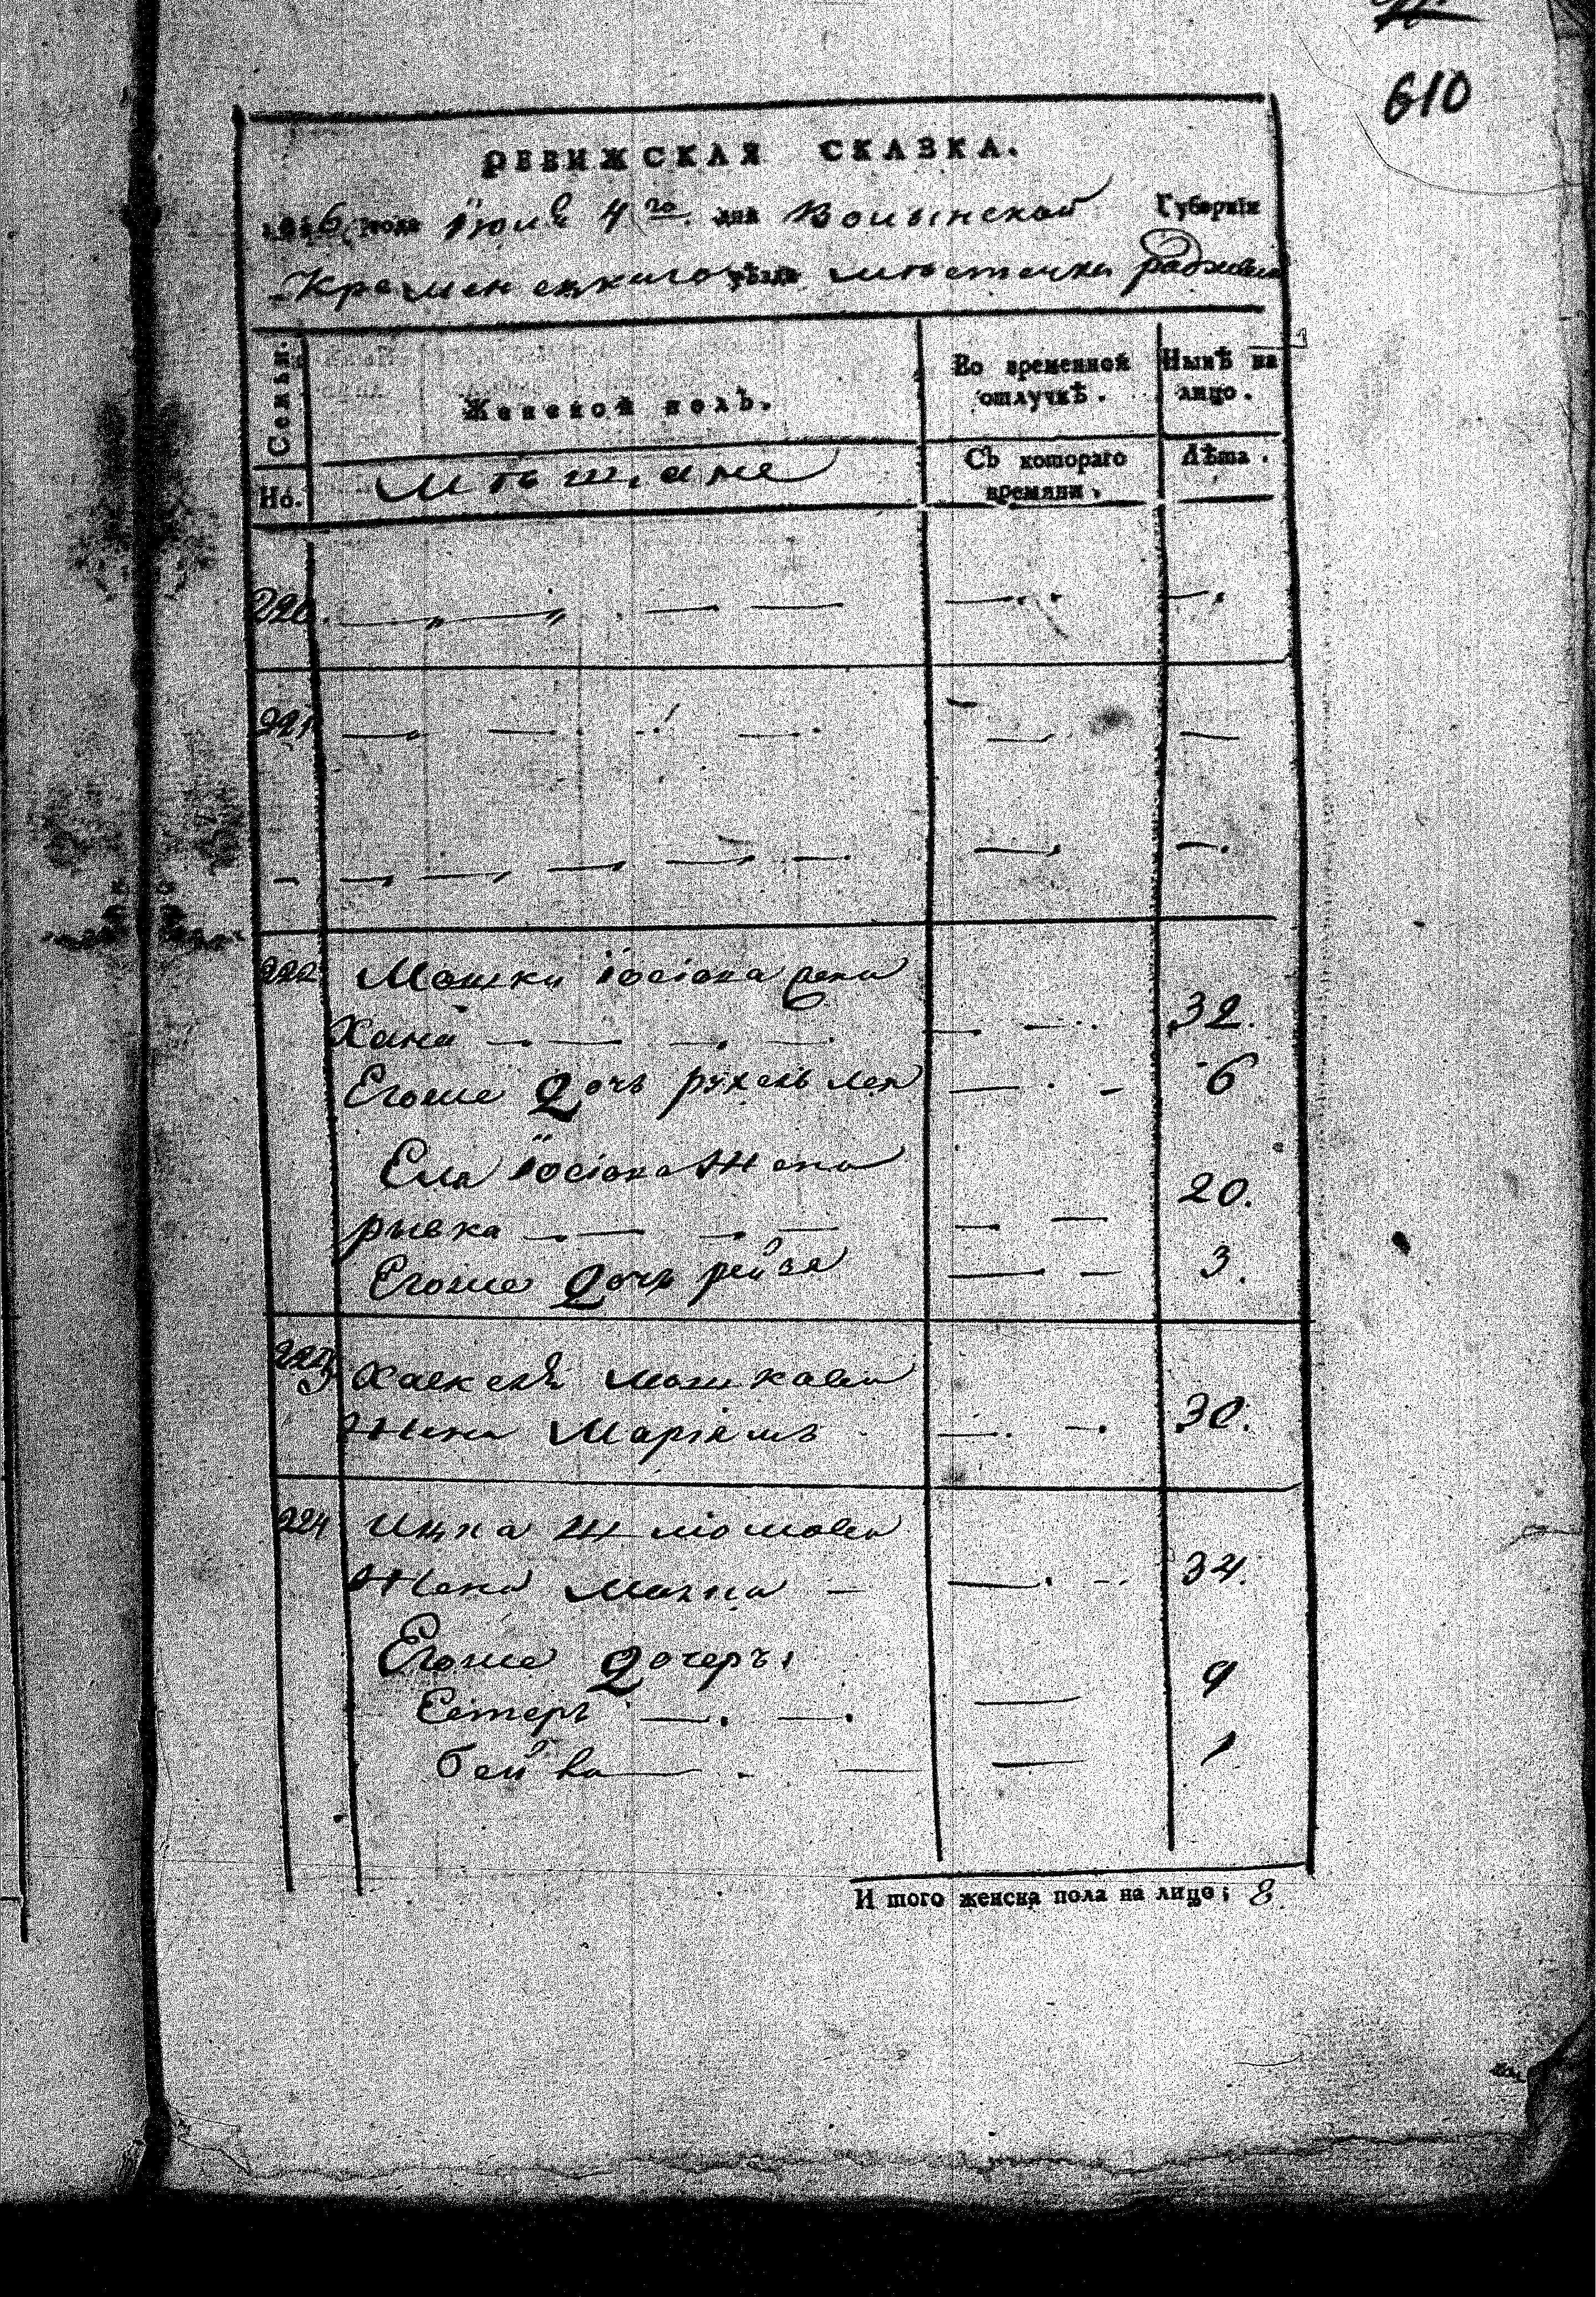 610
РЕВИЖСКАЯ СКАЗКА.
1816 года Іюня 4го дня Волынской Губерніи
Кременецкаго уѣзда мѣстечка радзивил
Семьи.
Женской полъ.
Во временной отлучкѣ.
Нынѣ на лицо.
Но.
Мѣщане
Съ котораго времяни.
Лѣта.
220.
221
222 Мошки Іосіова жена
Хана 32.
Егоже Дочь рухель лея 6
Еля Іосіова жена
рывка 20.
Егоже Дочь рейзя 3.
223 Хаскеля Мошковы
Жена Маріямъ 30.
224 Ицка Шліомовы
Жена Малка 34.
Егоже Дочеръı
Естеръ 9
бейла 1
И того женска пола на лицо; 8